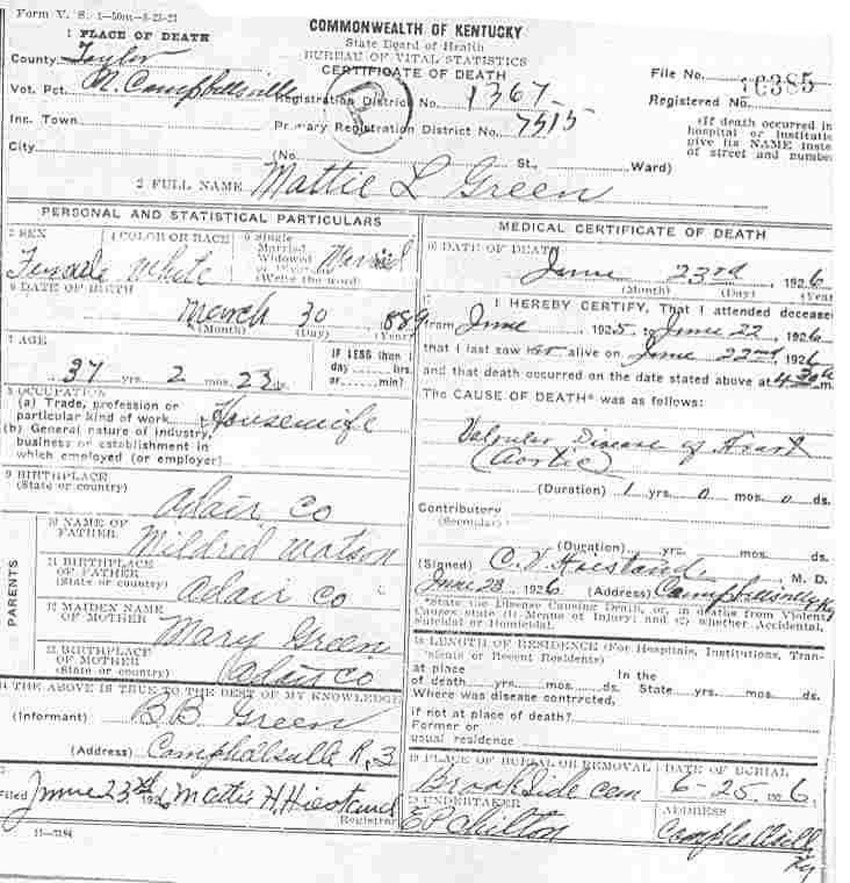 Form V. S. 1—50m—8-23-21
COMMONWEALTH OF KENTUCKY
State Board of Health
BUREAU OF VITAL STATISTICS
CERTIFICATE OF DEATH
1 PLACE OF DEATH
County Taylor
Vot. Pct. N. Campbellsville
Inc. Town
City
Registration District No. 1367
Primary Registration District No. 7515
File No. 16385
Registered No.
(No. St., Ward)
(If death occurred in
hospital or Instituti
give its NAME inste
of street and numbe
2 FULL NAME Mattie L Green
PERSONAL AND STATISTICAL PARTICULARS
3 SEX
Female
4 COLOR OR RACE
White
5 Single
Married
Widowed
or Divorced
(Write the word)
Married
6 DATE OF BIRTH
March 30 889
(Month) (Day) (Year)
7 AGE
37 yrs. 2 mos. 23 ds.
IF LESS than 1
day hrs.
or min?
8 OCCUPATION
(a) Trade, profession or
particular kind of work Housewife
(b) General nature of industry,
business or establishment in
which employed (or employer)
9 BIRTHPLACE
(State or country)
Adair Co
PARENTS
10 NAME OF
FATHER
Mildred Watson
11 BIRTHPLACE
OF FATHER
(State or country)
Adair Co
12 MAIDEN NAME
OF MOTHER
Mary Green
13 BIRTHPLACE
OF MOTHER
(State or country)
Adair Co
14 THE ABOVE IS TRUE TO THE BEST OF MY KNOWLEDGE
(Informant) B B Green
(Address) Campbellsville R, 3
Filed June 23rd 1926 Mattie H. Hiestand
Registrar
11—3184
MEDICAL CERTIFICATE OF DEATH
16 DATE OF DEATH
June 23rd, 1926
(Month) (Day) (Year
17 I HEREBY CERTIFY, That I attended decease
from June 1925, to June 22, 1926
that I last saw her alive on June 22nd, 1926
and that death occurred on the date stated above at 4 30 a m.
The CAUSE OF DEATH* was as follows:
Valvular Disease of Heart
(Aortic)
(Duration) 1 yrs. 0 mos. 0 ds.
Contributory
(Secondary)
(Duration) yrs. mos. ds.
(Signed) C. V Hiestand, M. D.
June 23 1926 (Address) Campbellsville Ky
*State the Disease Causing Death, or, in deaths from Violent
Causes state (1) Means of Injury; and (2) whether Accidental,
Suicidal or Homicidal.
18 LENGTH OF RESIDENCE (For Hospitals, Institutions, Tran-
sients or Recent Residents)
At place
of death yrs. mos. ds.
In the
State yrs. mos. ds.
Where was disease contracted,
if not at place of death?
Former or
usual residence
19 PLACE OF BURIAL OR REMOVAL
Brookside cem
DATE OF BURIAL
6-25, 1926,
20 UNDERTAKER
E P Chilton
ADDRESS
Campbellsvill
Ky